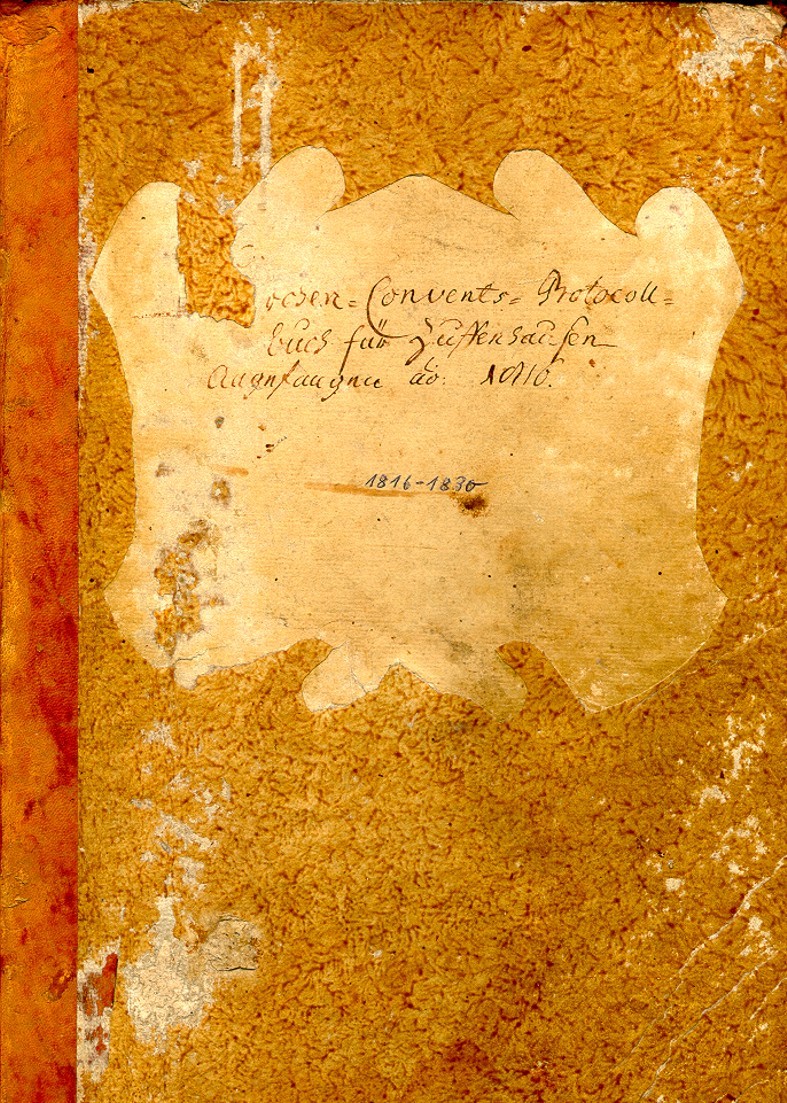 rchen=Convents=Protocoll=
buch für Zuffenhausen
Angefangen ao: 1816.
1816-1830